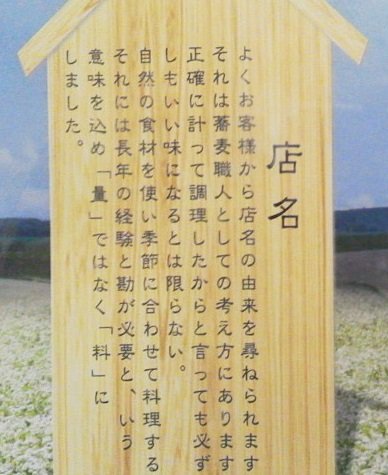 店名
よくお客様から店名の由来を尋ねられます
それは蕎麦職人としての考え方にあります
正確に計って調理したからと言っても必ず
しもいい味になるとは限らない。
自然の食材を使い季節に合わせて料理する
それには長年の経験と勘が必要と、いう
意味を込め「量」ではなく「料」に
しました。